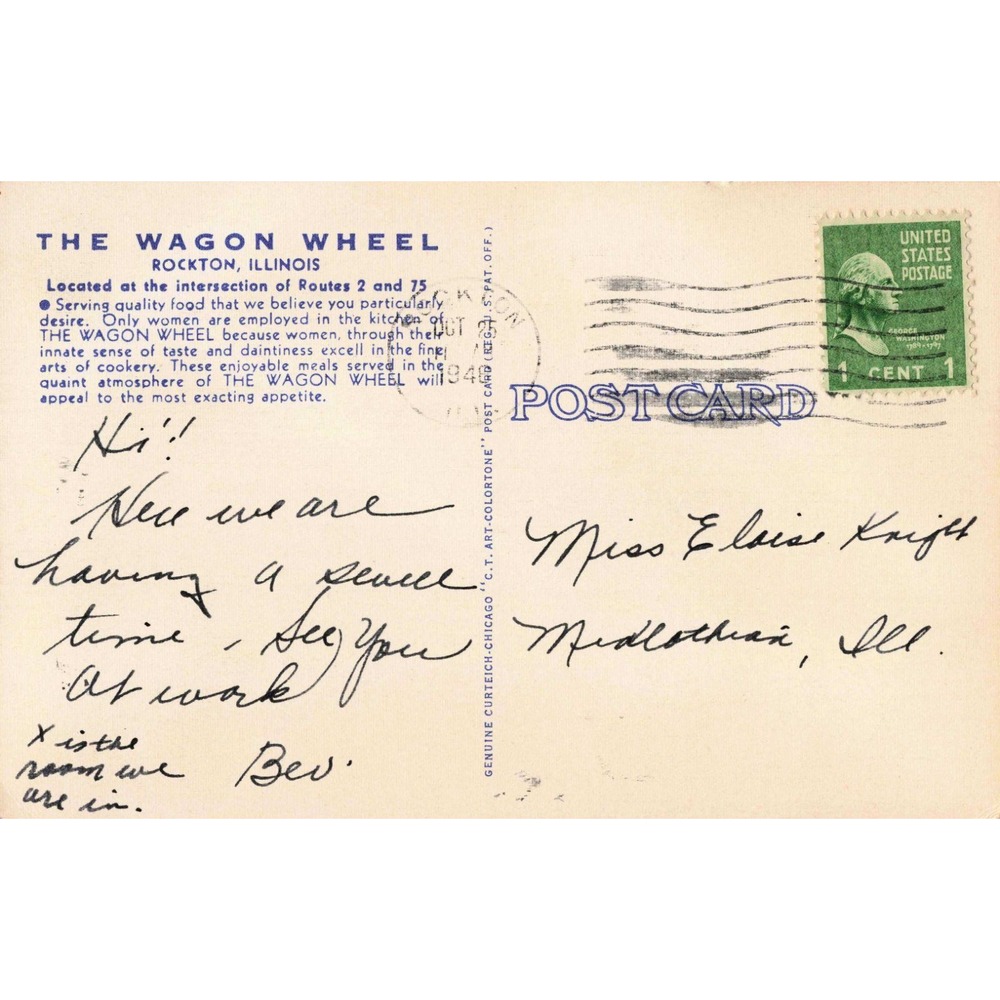 THE WAGON WHEEL
ROCKTON, ILLINOIS
Located at the intersection of Routes 2 and 75
● Serving quality food that we believe you particularly
desire. Only women are employed in the kitchen of
THE WAGON WHEEL because women, through their
innate sense of taste and daintiness excell in the fine
arts of cookery. These enjoyable meals served in the
quaint atmosphere of THE WAGON WHEEL will
appeal to the most exacting appetite.
Hi!!
Here we are
having a swell
time, See You
At work
Bev.
X is the
room we
are in.
GENUINE CURTEICH-CHICAGO "C.T. ART-COLORTONE" POST CARD (REG. U.S. PAT. OFF.)
ROCKTON
OCT
194
POST CARD
UNITED
STATES
POSTAGE
GEORGE
WASHINGTON
1789-1797
1 CENT 1
Miss Eloise Knight
Midlothian, Ill.